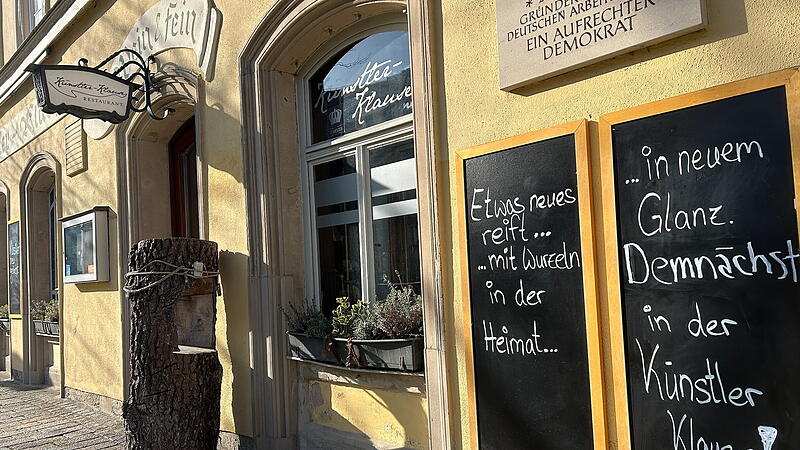 GRÜNDER
DEUTSCHEN ARBEI
EIN AUFRECHTER
DEMOKRAT
& fein
Künstler-Klause
RESTAURANT
Künstler-
Klause
Etwas neues
reift...
...mit Wurzeln
in der
Heimat...
...in neuem
Glanz.
Demnächst
in der
Künstler
Klaus